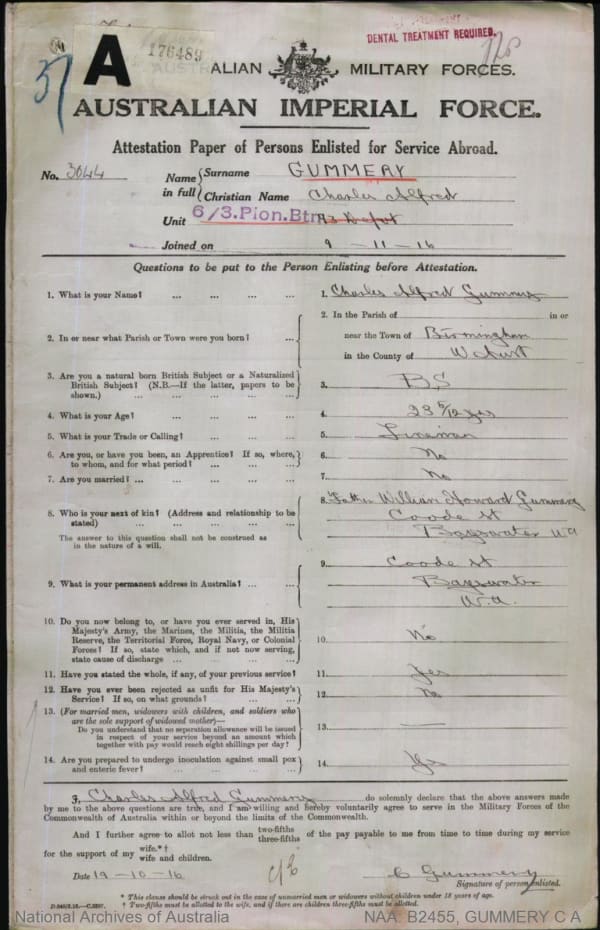 DENTAL TREATMENT REQUIRED.
37
A
176489
AUSTRALIAN MILITARY FORCES.
AUSTRALIAN IMPERIAL FORCE.
Attestation Paper of Persons Enlisted for Service Abroad.
No. 3044
Name in full
Surname GUMMERY
Christian Name Charles Alfred
Unit 6/3.Pion.Btn. A3 Depot
Joined on 9-11-16
Questions to be put to the Person Enlisting before Attestation.
1. What is your Name? ... ... ... ... 1. Charles Alfred Gummery
2. In or near what Parish or Town were you born? ... 2. In the Parish of in or
near the Town of Birmingham
in the County of
3. Are you a natural born British Subject or a Naturalized
British Subject? (N.B.—If the latter, papers to be
shown.) ... ... ... ... 3. BS
4. What is your Age? ... ... ... ... 4. 23 5/12 yrs
5. What is your Trade or Calling? ... ... ... 5. Lineman
6. Are you, or have you been, an Apprentice? If so, where,
to whom, and for what period? ... ... ... 6. No
7. Are you married? ... ... ... ... 7. No
8. Who is your next of kin? (Address and relationship to be
stated) ... ... ... ...
The answer to this question shall not be construed as
in the nature of a will.
8. Father William Howard Gummery
Coode St
Bayswater WA
9. What is your permanent address in Australia? ... ...
9. Coode St
Bayswater
W.A.
10. Do you now belong to, or have you ever served in, His
Majesty's Army, the Marines, the Militia, the Militia
Reserve, the Territorial Force, Royal Navy, or Colonial
Forces? If so, state which, and if not now serving,
state cause of discharge ... ... ... ... 10. No
11. Have you stated the whole, if any, of your previous service? 11. Yes
12. Have you ever been rejected as unfit for His Majesty's
Service? If so, on what grounds? ... ... 12. No
13. (For married men, widowers with children, and soldiers who
are the sole support of widowed mother)—
Do you understand that no separation allowance will be issued
in respect of your service beyond an amount which
together with pay would reach eight shillings per day?
13. —
14. Are you prepared to undergo inoculation against small pox
and enteric fever? ... ... ... ... 14. Yes
I, Charles Alfred Gummery do solemnly declare that the above answers made
by me to the above questions are true, and I am willing and hereby voluntarily agree to serve in the Military Forces of the
Commonwealth of Australia within or beyond the limits of the Commonwealth.
And I further agree to allot not less than two-fifths three-fifths of the pay payable to me from time to time during my service
for the support of my wife.*† wife and children.
Date 19-10-16
C Gummery
Signature of person enlisted.
* This clause should be struck out in the case of unmarried men or widowers without children under 18 years of age.
† Two-fifths must be allotted to the wife, and if there are children three-fifths must be allotted.
National Archives of Australia
NAA: B2455, GUMMERY C A